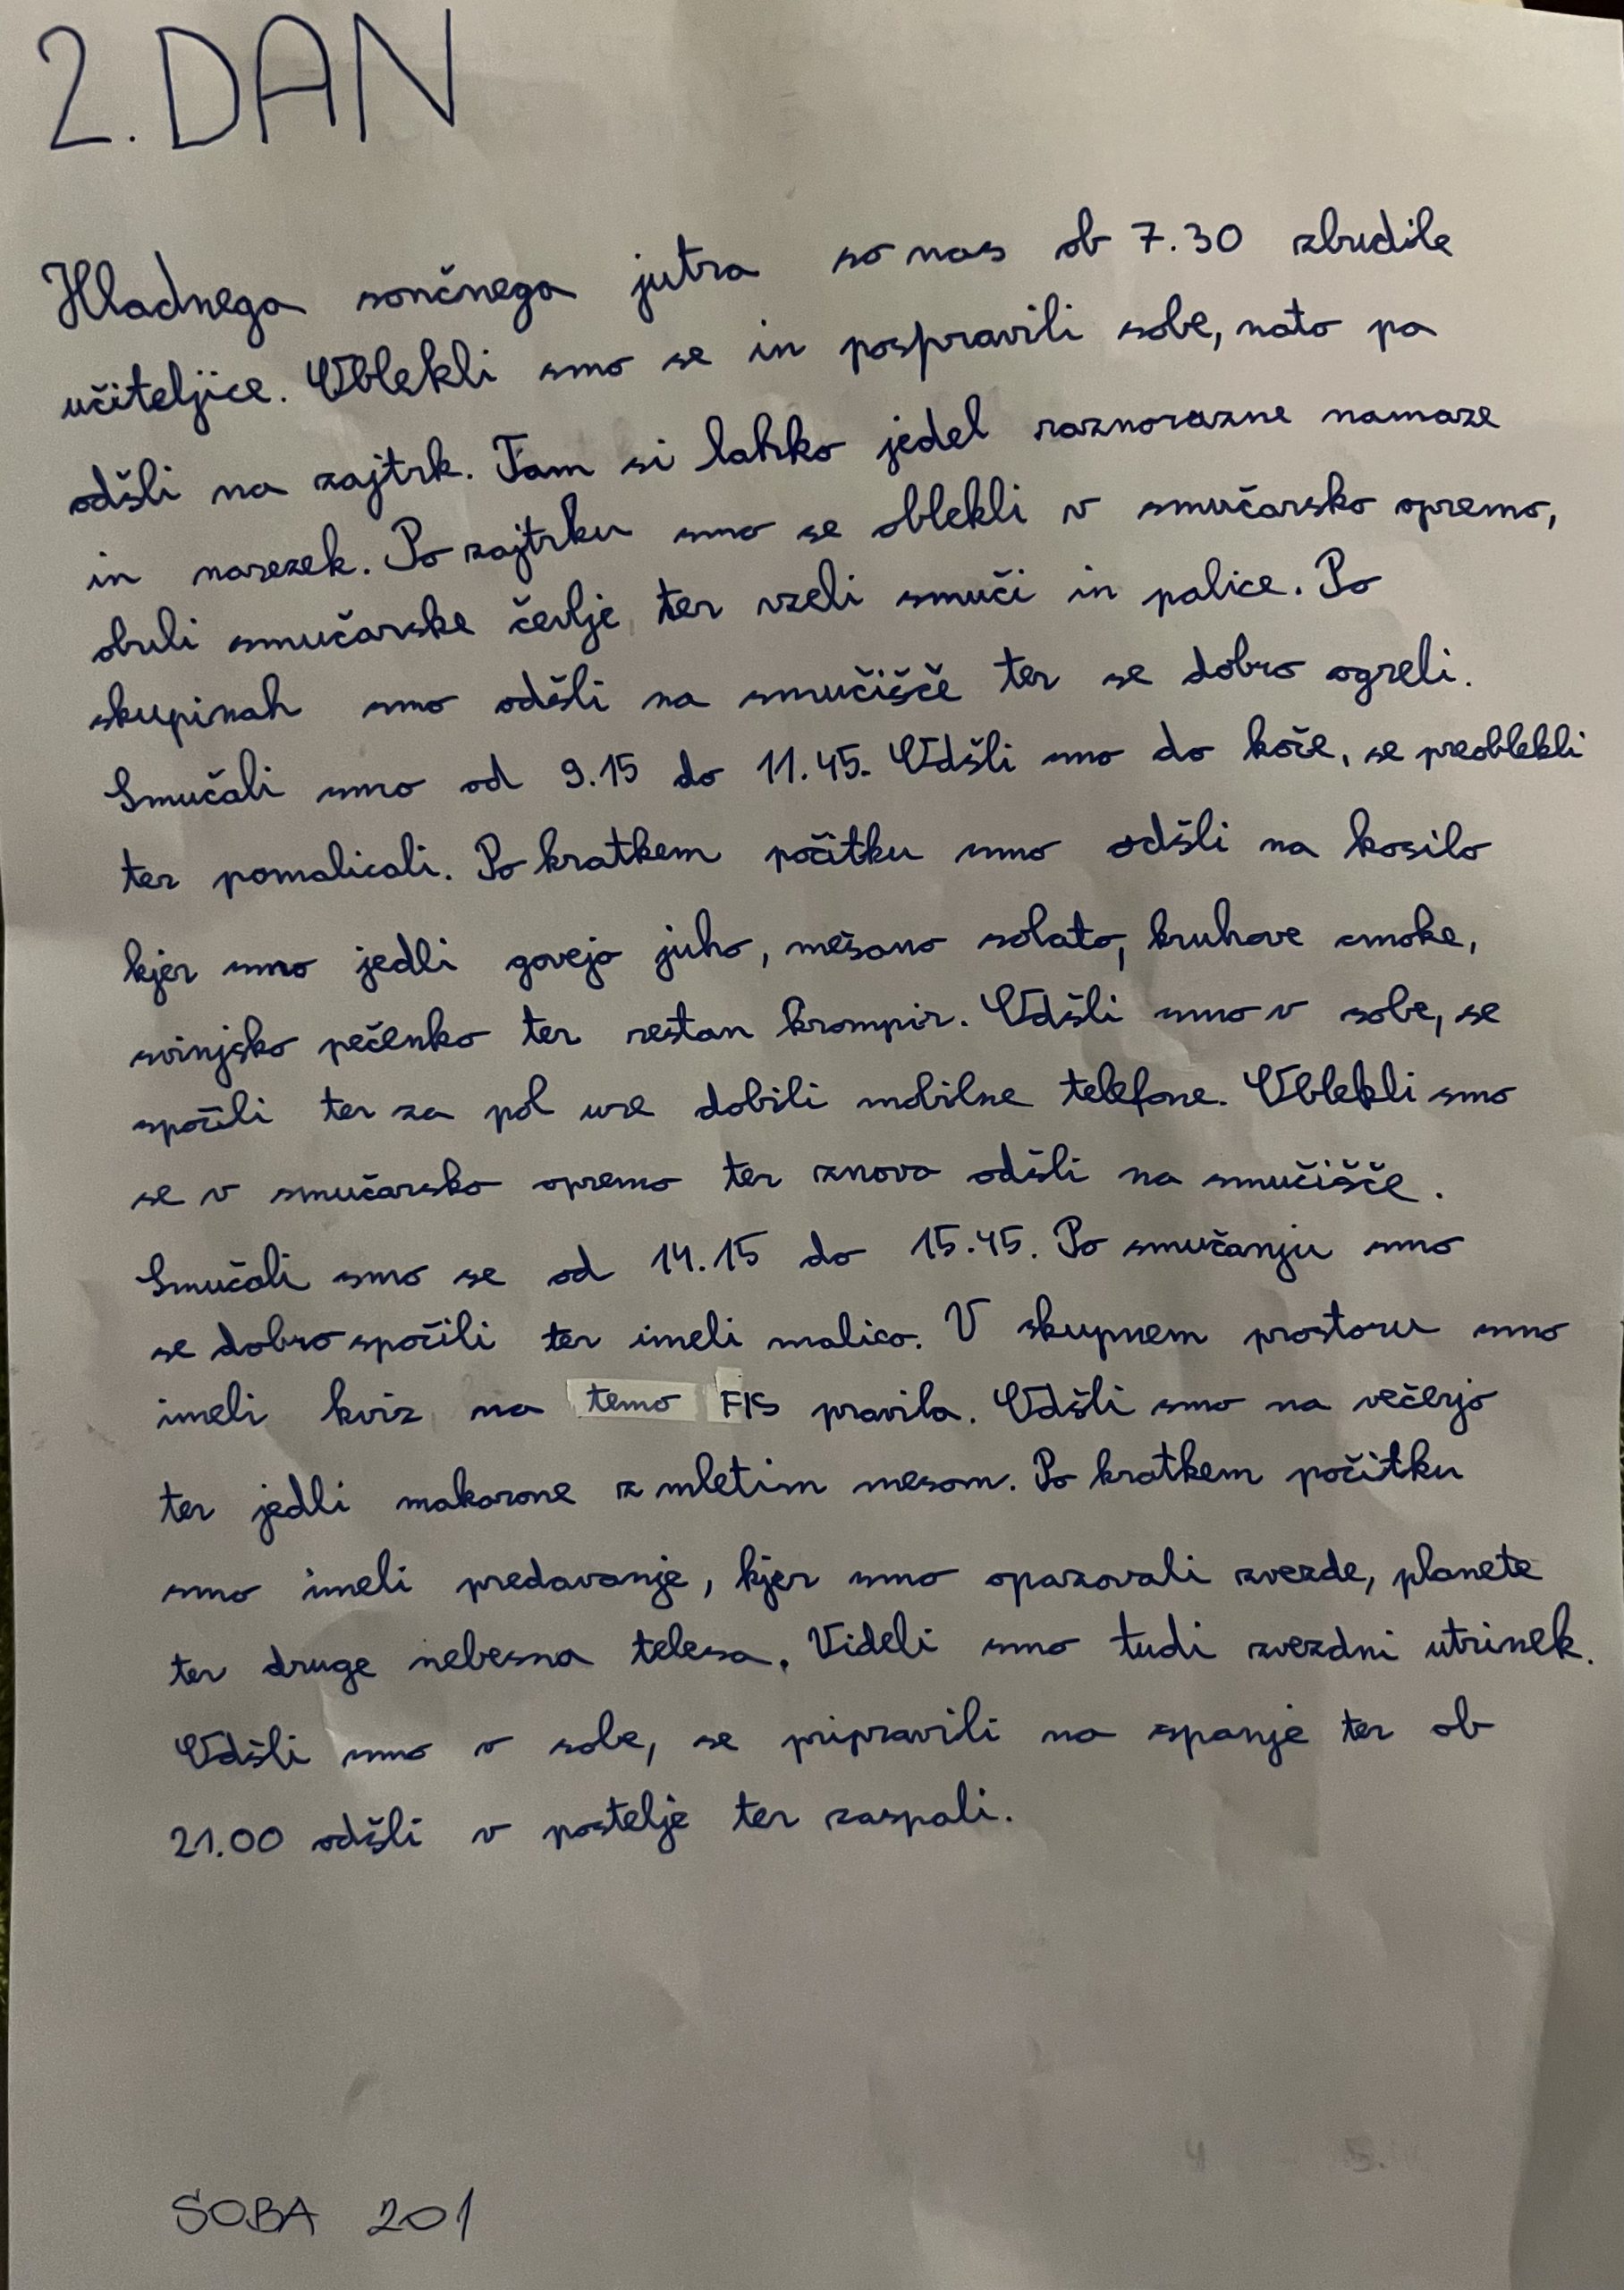 2. DAN
Hladnega sončnega jutra so nas ob 7.30 zbudile
učiteljice. Oblekli smo se in pospravili sobe, nato pa
odšli na zajtrk. Tam si lahko jedel raznorazne namaze
in narezek. Po zajtrku smo se oblekli v smučarsko opremo,
obuli smučarske čevlje, ter vzeli smuči in palice. Po
skupinah smo odšli na smučišče ter se dobro ogreli.
Smučali smo od 9.15 do 11.45. Odšli smo do koče, se preoblekli
ter pomalicali. Po kratkem počitku smo odšli na kosilo
kjer smo jedli govejo juho, mešano solato, kruhove cmoke,
svinjsko pečenko ter restan krompir. Odšli smo v sobe, se
spočili ter za pol ure dobili mobilne telefone. Oblekli smo
se v smučarsko opremo ter znova odšli na smučišče.
Smučali smo se od 14.15 do 15.45. Po smučanju smo
se dobro spočili ter imeli malico. V skupnem prostoru smo
imeli kviz na temo FIS pravila. Odšli smo na večerjo
ter jedli makarone z mletim mesom. Po kratkem počitku
smo imeli predavanje, kjer smo opazovali zvezde, planete
ter druge nebesna telesa. Videli smo tudi zvezdni utrinek.
Odšli smo v sobe, se pripravili na spanje ter ob
21.00 odšli v postelje ter zaspali.
SOBA 201